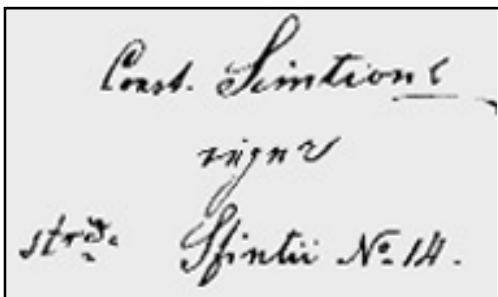 Const. Simtion
signr
str̃da Sfintii No. 14.